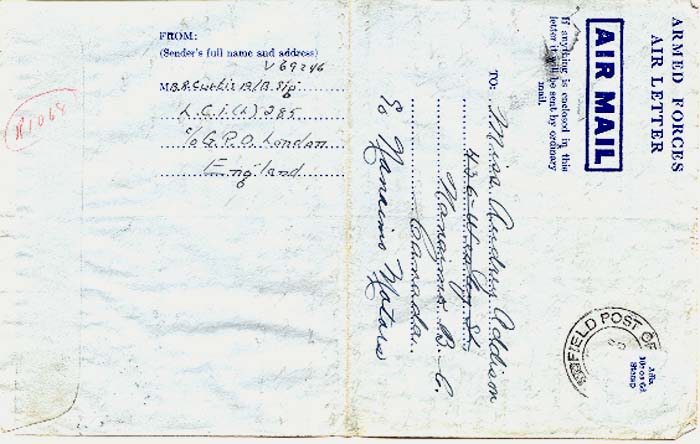 FROM:
(Sender's full name and address)
V 69246
M B.R. Curtis O/D. Sig
L.C.I.(L) 285
c/o G.P.O. London
England
R1068
ARMED FORCES
AIR LETTER
AIR MAIL
If anything is enclosed in this
letter it will be sent by ordinary
mail.
TO: Miss Audrey Addison
436 Wesley St
Nanaimo B.C.
Canada.
Co Nanaimo Motors
FIELD POST OF
Affix
Stamp